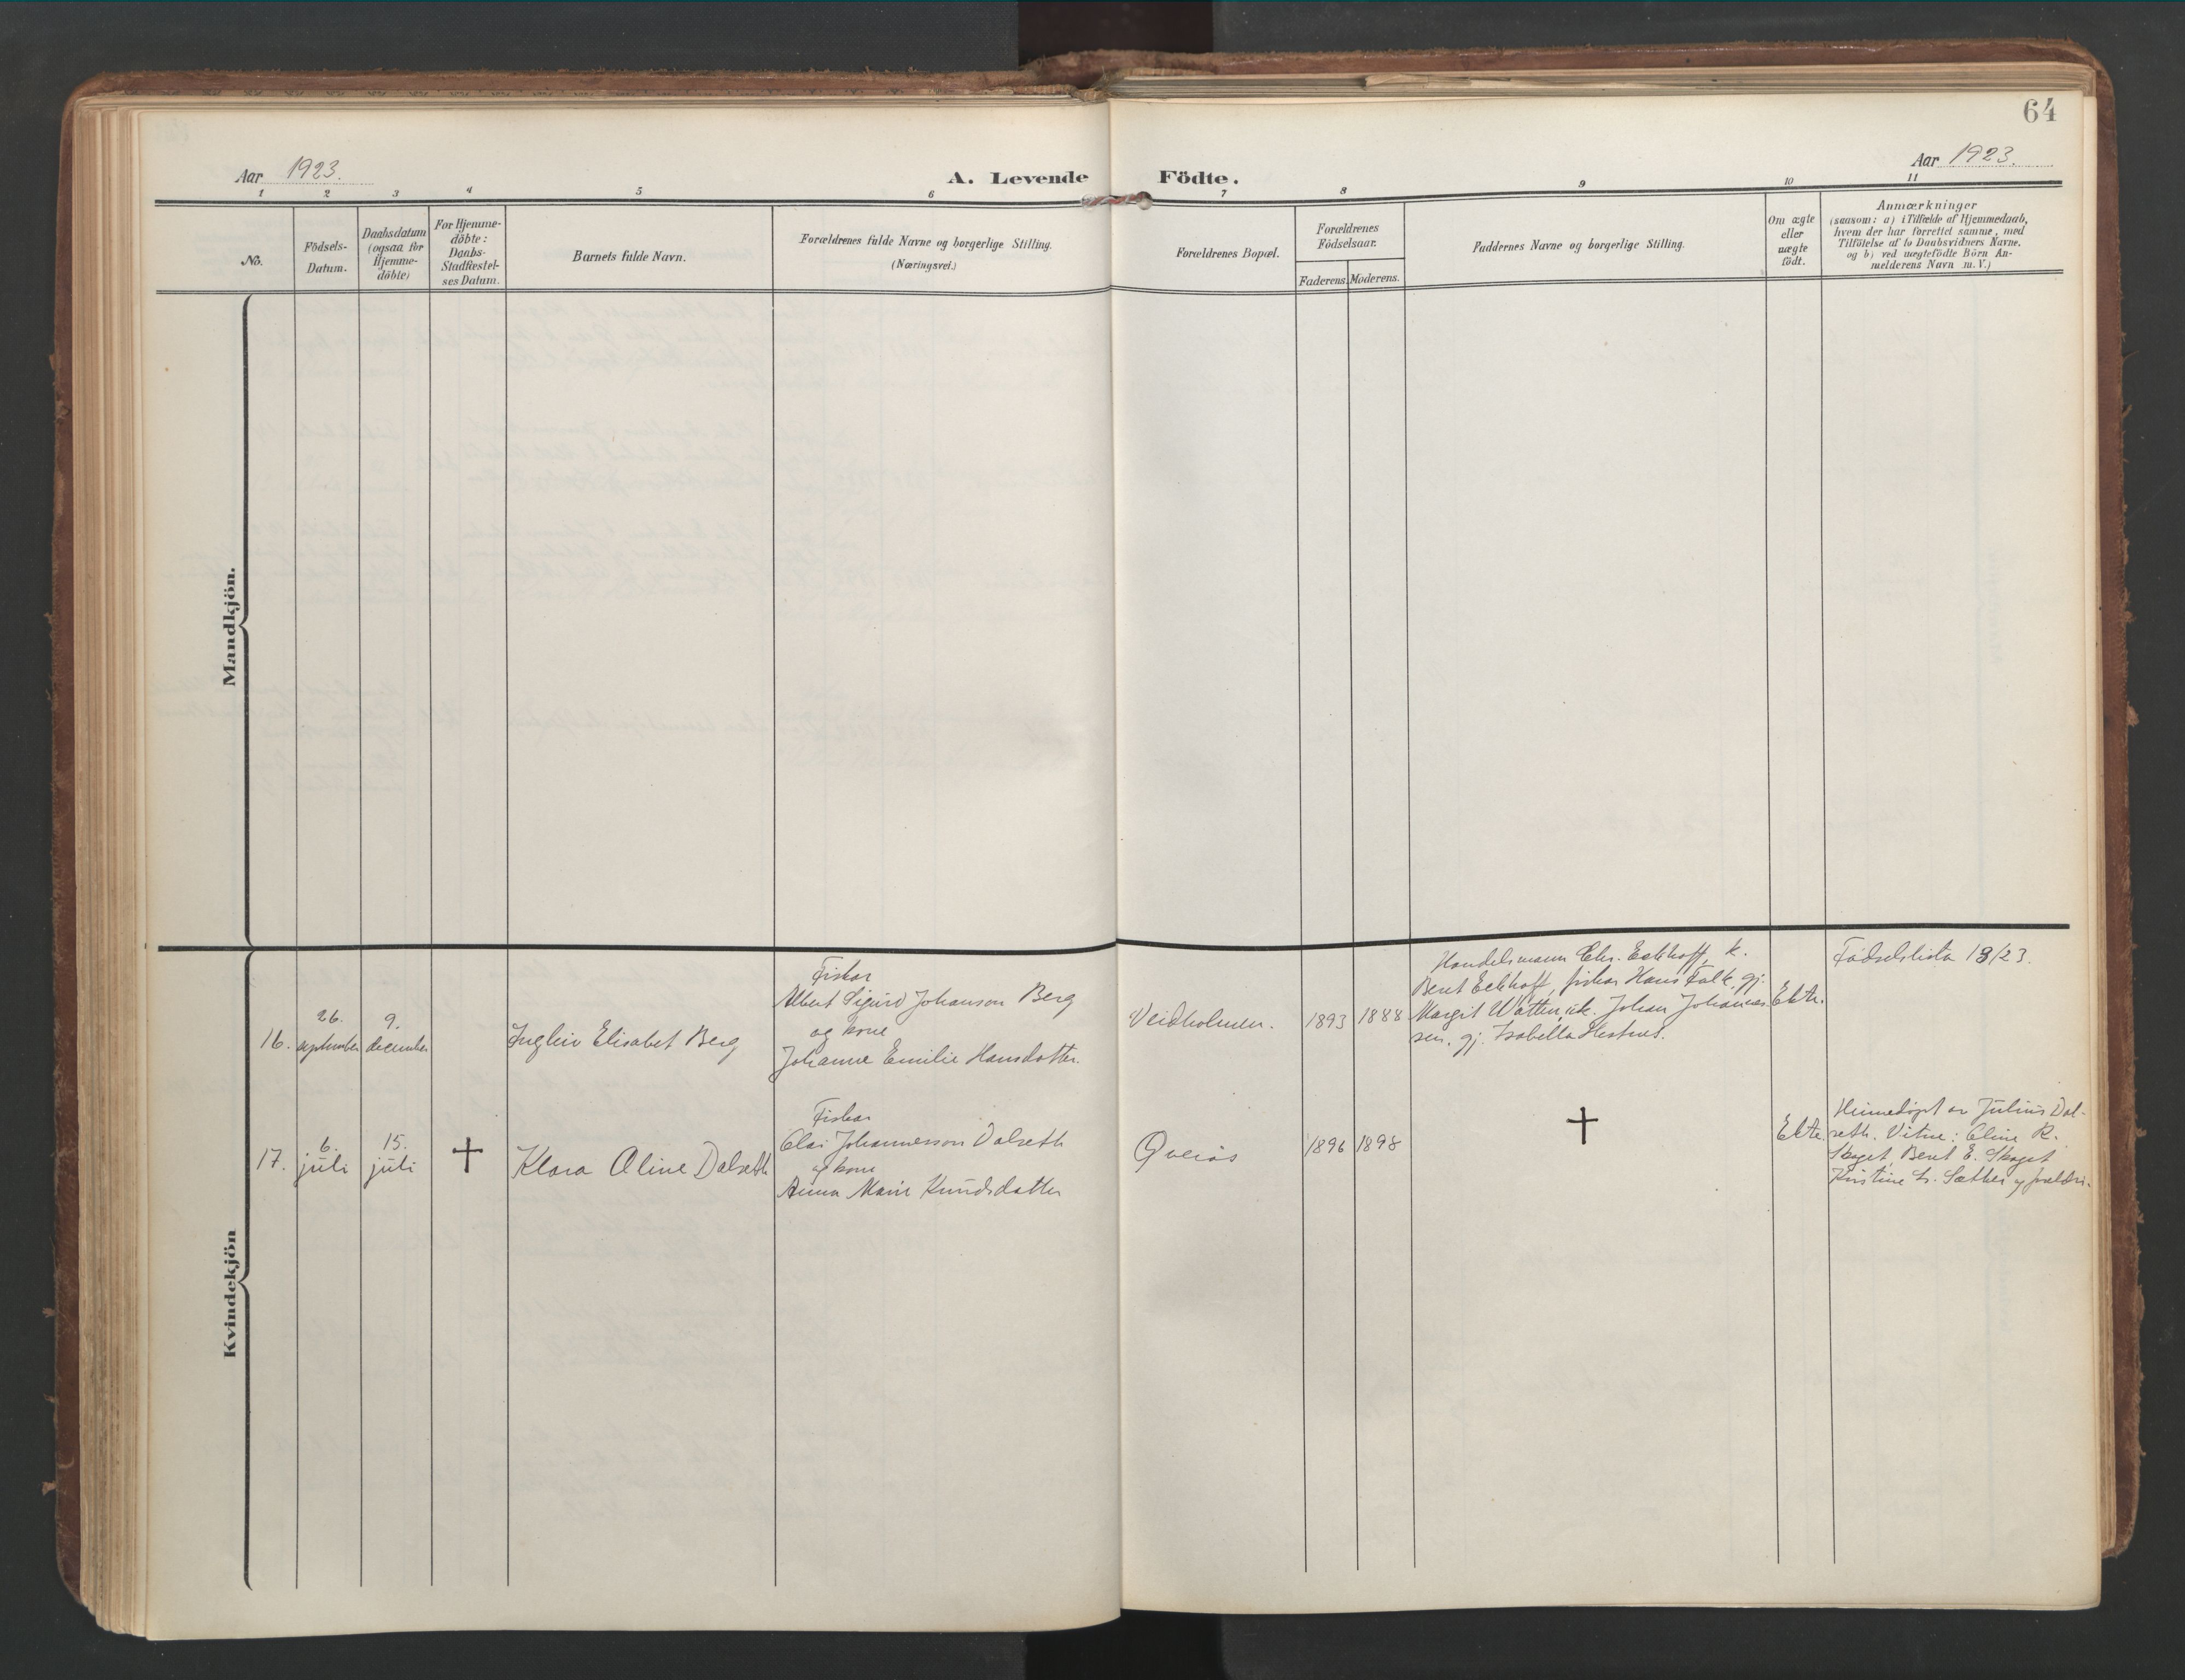 64
Aar 1923.
A. Levende Födte.
Aar 1923.
1 2 3 4 5 6 7 8 9 10 11
No.
Födsels-
Datum.
Daabsdatum
(ogsaa for
Hjemme-
döbte)
For Hjemme-
döbte:
Daabs-
Stadfæstel-
ses Datum.
Barnets fulde Navn.
Forældrenes fulde Navne og borgerlige Stilling.
(Næringsvei.)
Forældrenes Bopæl.
Forældrenes
Födselsaar.
Faderens. Moderens.
Faddernes Navne og borgerlige Stilling.
Om ægte
eller
uægte
födt.
Anmærkninger
(saasom: a) i Tilfælde af Hjemmedaab,
hvem der har forrettet samme, med
Tilföielse af to Daabsvidners Navne.
og b) ved uægtefödte Börn An-
melderens Navn m. V.)
Mandkjön.
Kvindekjön
16.
26.
september
9.
december
Ingleiv Elisabet Berg
Fiskar
Albert Sigurd Johanson Berg
og kone
Johanne Emilie Hansdotter.
Veidholmen.
1893
1888
Handelsmann Chr. Eckhoff, k.
Berit Eckhoff, fiskar Hans Falk, gj.
Margit Watten, uk. Johan Johannes-
sen, gj. Isabella Hestnes.
Ekte.
Fødselslista 18/23.
17.
6.
juli
15.
juli
†
Klara Oline Dalseth
Fiskar
Olai Johannesson Dalseth
og kone
Anna Marie Knudsdatter
Qveiøs
1896
1898
†
Ekte.
Heimedøpt av Julius Dal-
seth. Vitne: Oline R.
Skaget, Berit E. Skaget
Kristine L. Sæther og foreldri.